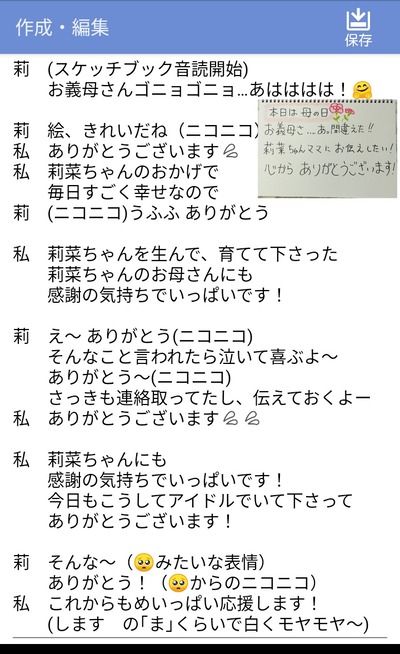 作成・編集
保存
莉 (スケッチブック音読開始)
お義母さんゴニョゴニョ…あはははは！🤗
本日は 母の日
お義母さ….あっ間違えた!!
莉菜ちゃんママに お伝えしたい！
心から ありがとうございます!
莉 絵、きれいだね（ニコニコ）
私 ありがとうございます💦
私 莉菜ちゃんのおかげで
毎日すごく幸せなので
莉 (ニコニコ)うふふ ありがとう
私 莉菜ちゃんを生んで、育てて下さった
莉菜ちゃんのお母さんにも
感謝の気持ちでいっぱいです！
莉 え〜 ありがとう(ニコニコ)
そんなこと言われたら泣いて喜ぶよ〜
ありがとう〜(ニコニコ)
さっきも連絡取ってたし、伝えておくよー
私 ありがとうございます💦💦
私 莉菜ちゃんにも
感謝の気持ちでいっぱいです！
今日もこうしてアイドルでいて下さって
ありがとうございます！
莉 そんな〜（🥺みたいな表情）
ありがとう！（🥺からのニコニコ）
私 これからもめいっぱい応援します！
(します の｢ま｣くらいで白くモヤモヤ〜)